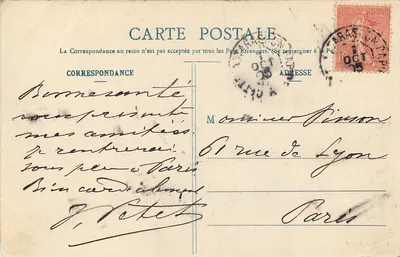 CARTE POSTALE
La Correspondance au recto n'est pas acceptée par tous les Pays Étrangers. (Se renseigner à la Poste)
CORRESPONDANCE
ADRESSE
OCT
OCT
Bonne santé
mes amitiés
Je rentrerai
sous peu à Paris
Bien cordialement
Monsieur Pinson
61 rue de Lyon
Paris